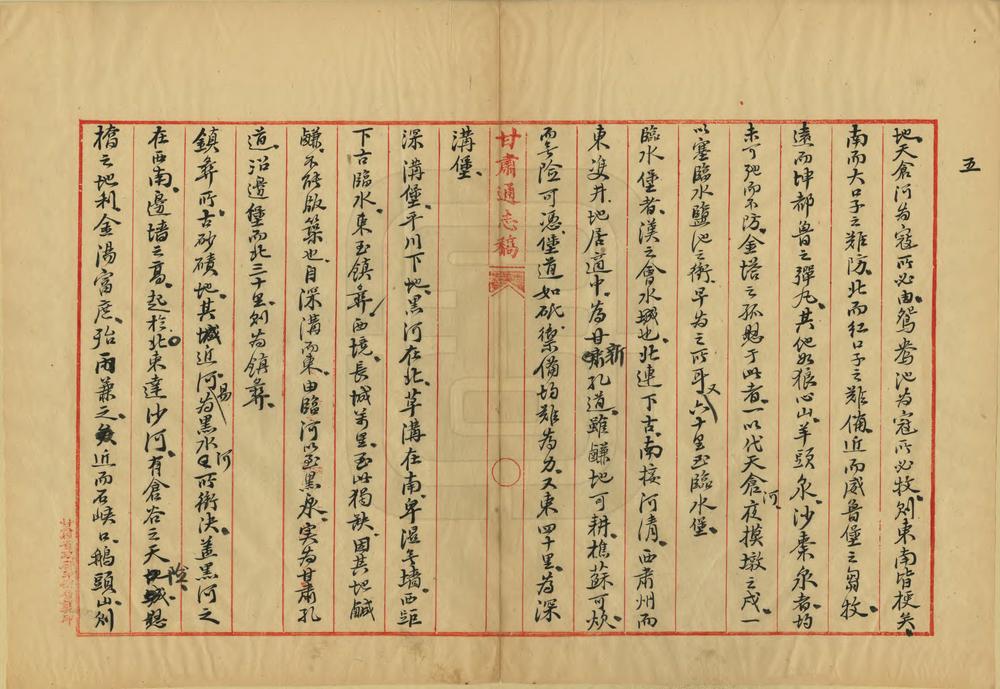 五
地、天倉河为寇所必由、鴛鴦池为寇所必牧、則東南皆梗矣、
南而大口子之难防、北而红口子之难備、近而威魯堡之芻牧、
遠而坤都魯之彈丸、其他如狼心山、羊頭泉、沙棗泉者、均
未可弛而不防、金塔之孤懸于此者、一以代天倉河夜摸墩之戍、一
以塞臨水鹽池之衝、早为之所耳、又六十里至臨水堡、
臨水堡者、漢之會水城也、北連下古、南接河清、西肃州而
東雙井、地居道中、为甘新孔道、雖鹻地可耕、樵蘇可爨、
而无险可憑、堡道如砥、禦備均难为力、又東四十里、为深
甘肅通志稿
溝堡、
深溝堡、平川下地、黑河在北、草溝在南、卑濕无墙、西距
下古臨水、東至鎮彝、西境、長城萬里、至此獨缺、因其地鹹
鹻、不能版築也、自深溝而東、由臨河以至黑泉、実为甘肃孔
道、沿邊堡而北三十里、則为鎮彝、
鎮彝所古砂磧地、其城近河、易为黑水河所衝决、蓋黑河之
在西南、邊墙之髙、起於北東達沙河、有倉谷之天险、懸
橋之地利、金湯富庶、殆两兼之、近而石峡口、鵝頭山、則